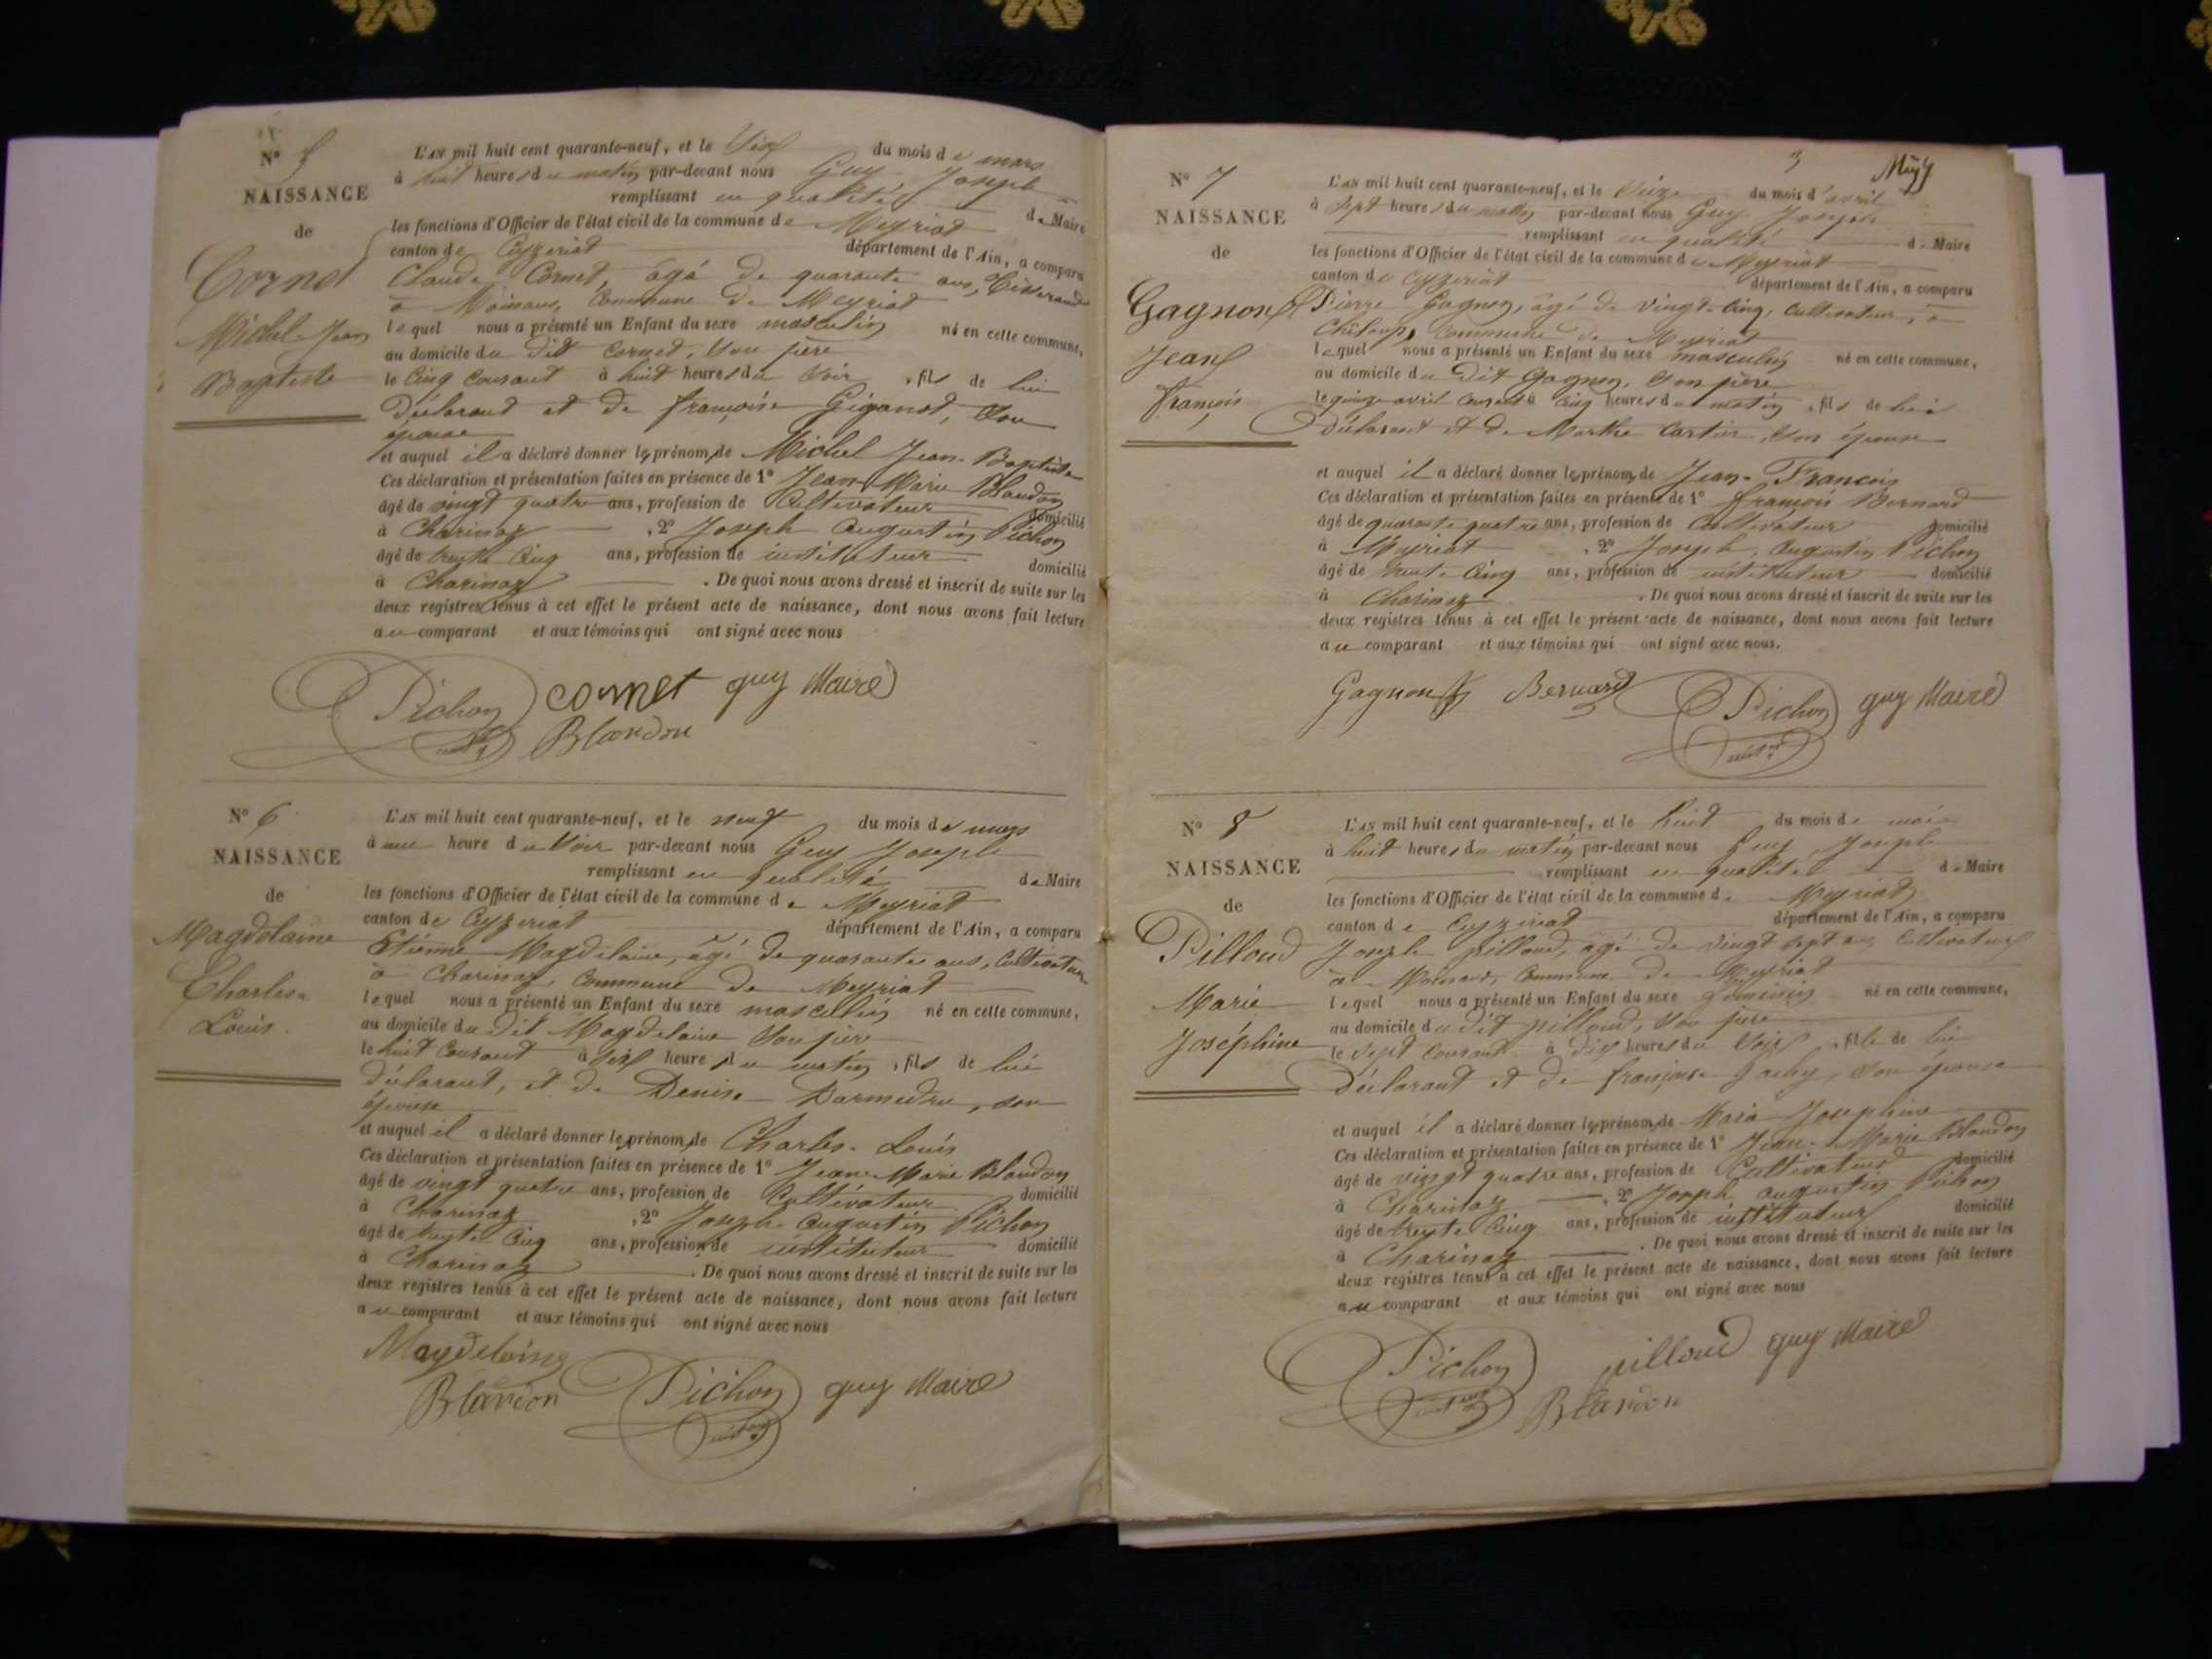 N° 5
NAISSANCE
de
Cornet
Michel Jean
Baptiste
L'AN mil huit cent quarante-neuf, et le Six du mois de mars
à huit heures du matin par-devant nous Guy Joseph
remplissant en qualité de Maire
les fonctions d'Officier de l'état civil de la commune de Meyriat
canton de Ceyzeriat département de l'Ain, a comparu
Claude Cornet, âgé de quarante ans, Tisserand
à Moinans, Commune de Meyriat
lequel nous a présenté un Enfant du sexe masculin né en cette commune,
au domicile du dit Cornet, son père
le Cinq Courant à huit heures du Soir, fils de lui
Déclarant et de françoise Giganot, Son
épouse
et auquel il a déclaré donner les prénoms de Michel Jean-Baptiste
Ces déclaration et présentation faites en présence de 1° Jean Marie Blandon
âgé de vingt quatre ans, profession de Cultivateur domicilié
à Charinaz, 2° Joseph Augustin Pichon
âgé de trente Cinq ans, profession de instituteur domicilié
à Charinaz. De quoi nous avons dressé et inscrit de suite sur les
deux registres tenus à cet effet le présent acte de naissance, dont nous avons fait lecture
au comparant et aux témoins qui ont signé avec nous
Pichon cornet guy Maire
Blandon
N° 6
NAISSANCE
de
Magdelaine
Charles-
Louis.
L'AN mil huit cent quarante-neuf, et le neuf du mois de mars
à une heure du Soir par-devant nous Guy Joseph
remplissant en qualité de Maire
les fonctions d'Officier de l'état civil de la commune de Meyriat
canton de Ceyzeriat département de l'Ain, a comparu
Etienne Magdelaine, âgé de quarante ans, Cultivateur
à Charinaz, Commune de Meyriat
lequel nous a présenté un Enfant du sexe masculin né en cette commune,
au domicile du dit Magdelaine Son père
le huit Courant à heures du matin, fils de lui
Déclarant, et de Denise Darmedru, son
épouse
et auquel il a déclaré donner les prénoms de Charles-Louis
Ces déclaration et présentation faites en présence de 1° Jean-Marie Blandon
âgé de vingt quatre ans, profession de Cultivateur domicilié
à Charinaz, 2° Joseph Augustin Pichon
âgé de trente Cinq ans, profession de instituteur domicilié
à Charinaz. De quoi nous avons dressé et inscrit de suite sur les
deux registres tenus à cet effet le présent acte de naissance, dont nous avons fait lecture
au comparant et aux témoins qui ont signé avec nous
Magdelaine
Blandon Pichon guy Maire
3
N° 7
NAISSANCE
de
Gagnon
Jean
françois
L'AN mil huit cent quarante-neuf, et le Seize du mois d'avril
à Sept heures du matin par-devant nous Guy Joseph
remplissant en qualité de Maire
les fonctions d'Officier de l'état civil de la commune de Meyriat
canton de Ceyzeriat département de l'Ain, a comparu
Pierre Gagnon, âgé de vingt-Cinq, Cultivateur, à
Châloup, Commune de Meyriat
lequel nous a présenté un Enfant du sexe masculin né en cette commune,
au domicile du dit Gagnon, Son père
le quinze avril Courant à Cinq heures du matin, fils de lui
Déclarant et de Marthe Cartier, Son épouse
et auquel il a déclaré donner les prénoms de Jean-François
Ces déclaration et présentation faites en présence de 1° françois Bernard
âgé de quarante quatre ans, profession de Cultivateur domicilié
à Meyriat, 2° Joseph, Augustin Pichon
âgé de trente-Cinq ans, profession de instituteur domicilié
à Charinaz. De quoi nous avons dressé et inscrit de suite sur les
deux registres tenus à cet effet le présent acte de naissance, dont nous avons fait lecture
au comparant et aux témoins qui ont signé avec nous.
Gagnon Bernard Pichon guy Maire
N° 8
NAISSANCE
de
Pilloud
Marie
Joséphine
L'AN mil huit cent quarante-neuf, et le huit du mois de mai
à huit heures du matin par-devant nous Guy Joseph
remplissant en qualité de Maire
les fonctions d'Officier de l'état civil de la commune de Meyriat
canton de Ceyzeriat département de l'Ain, a comparu
Joseph pilloud, âgé de vingt sept ans Cultivateur
à Moinans, Commune de Meyriat
lequel nous a présenté un Enfant du sexe féminin né en cette commune,
au domicile du dit pilloud, Son père
le Sept Courant à dix heures du Soir, fille de lui
Déclarant et de françoise, Son épouse
et auquel il a déclaré donner les prénoms de Marie Josephine
Ces déclaration et présentation faites en présence de 1° Jean-Marie Blandon
âgé de vingt quatre ans, profession de Cultivateur domicilié
à Charinaz, 2° Joseph augustin Pichon
âgé de trente Cinq ans, profession de instituteur domicilié
à Charinaz. De quoi nous avons dressé et inscrit de suite sur les
deux registres tenus à cet effet le présent acte de naissance, dont nous avons fait lecture
au comparant et aux témoins qui ont signé avec nous
Pichon pilloud guy Maire
Blandon